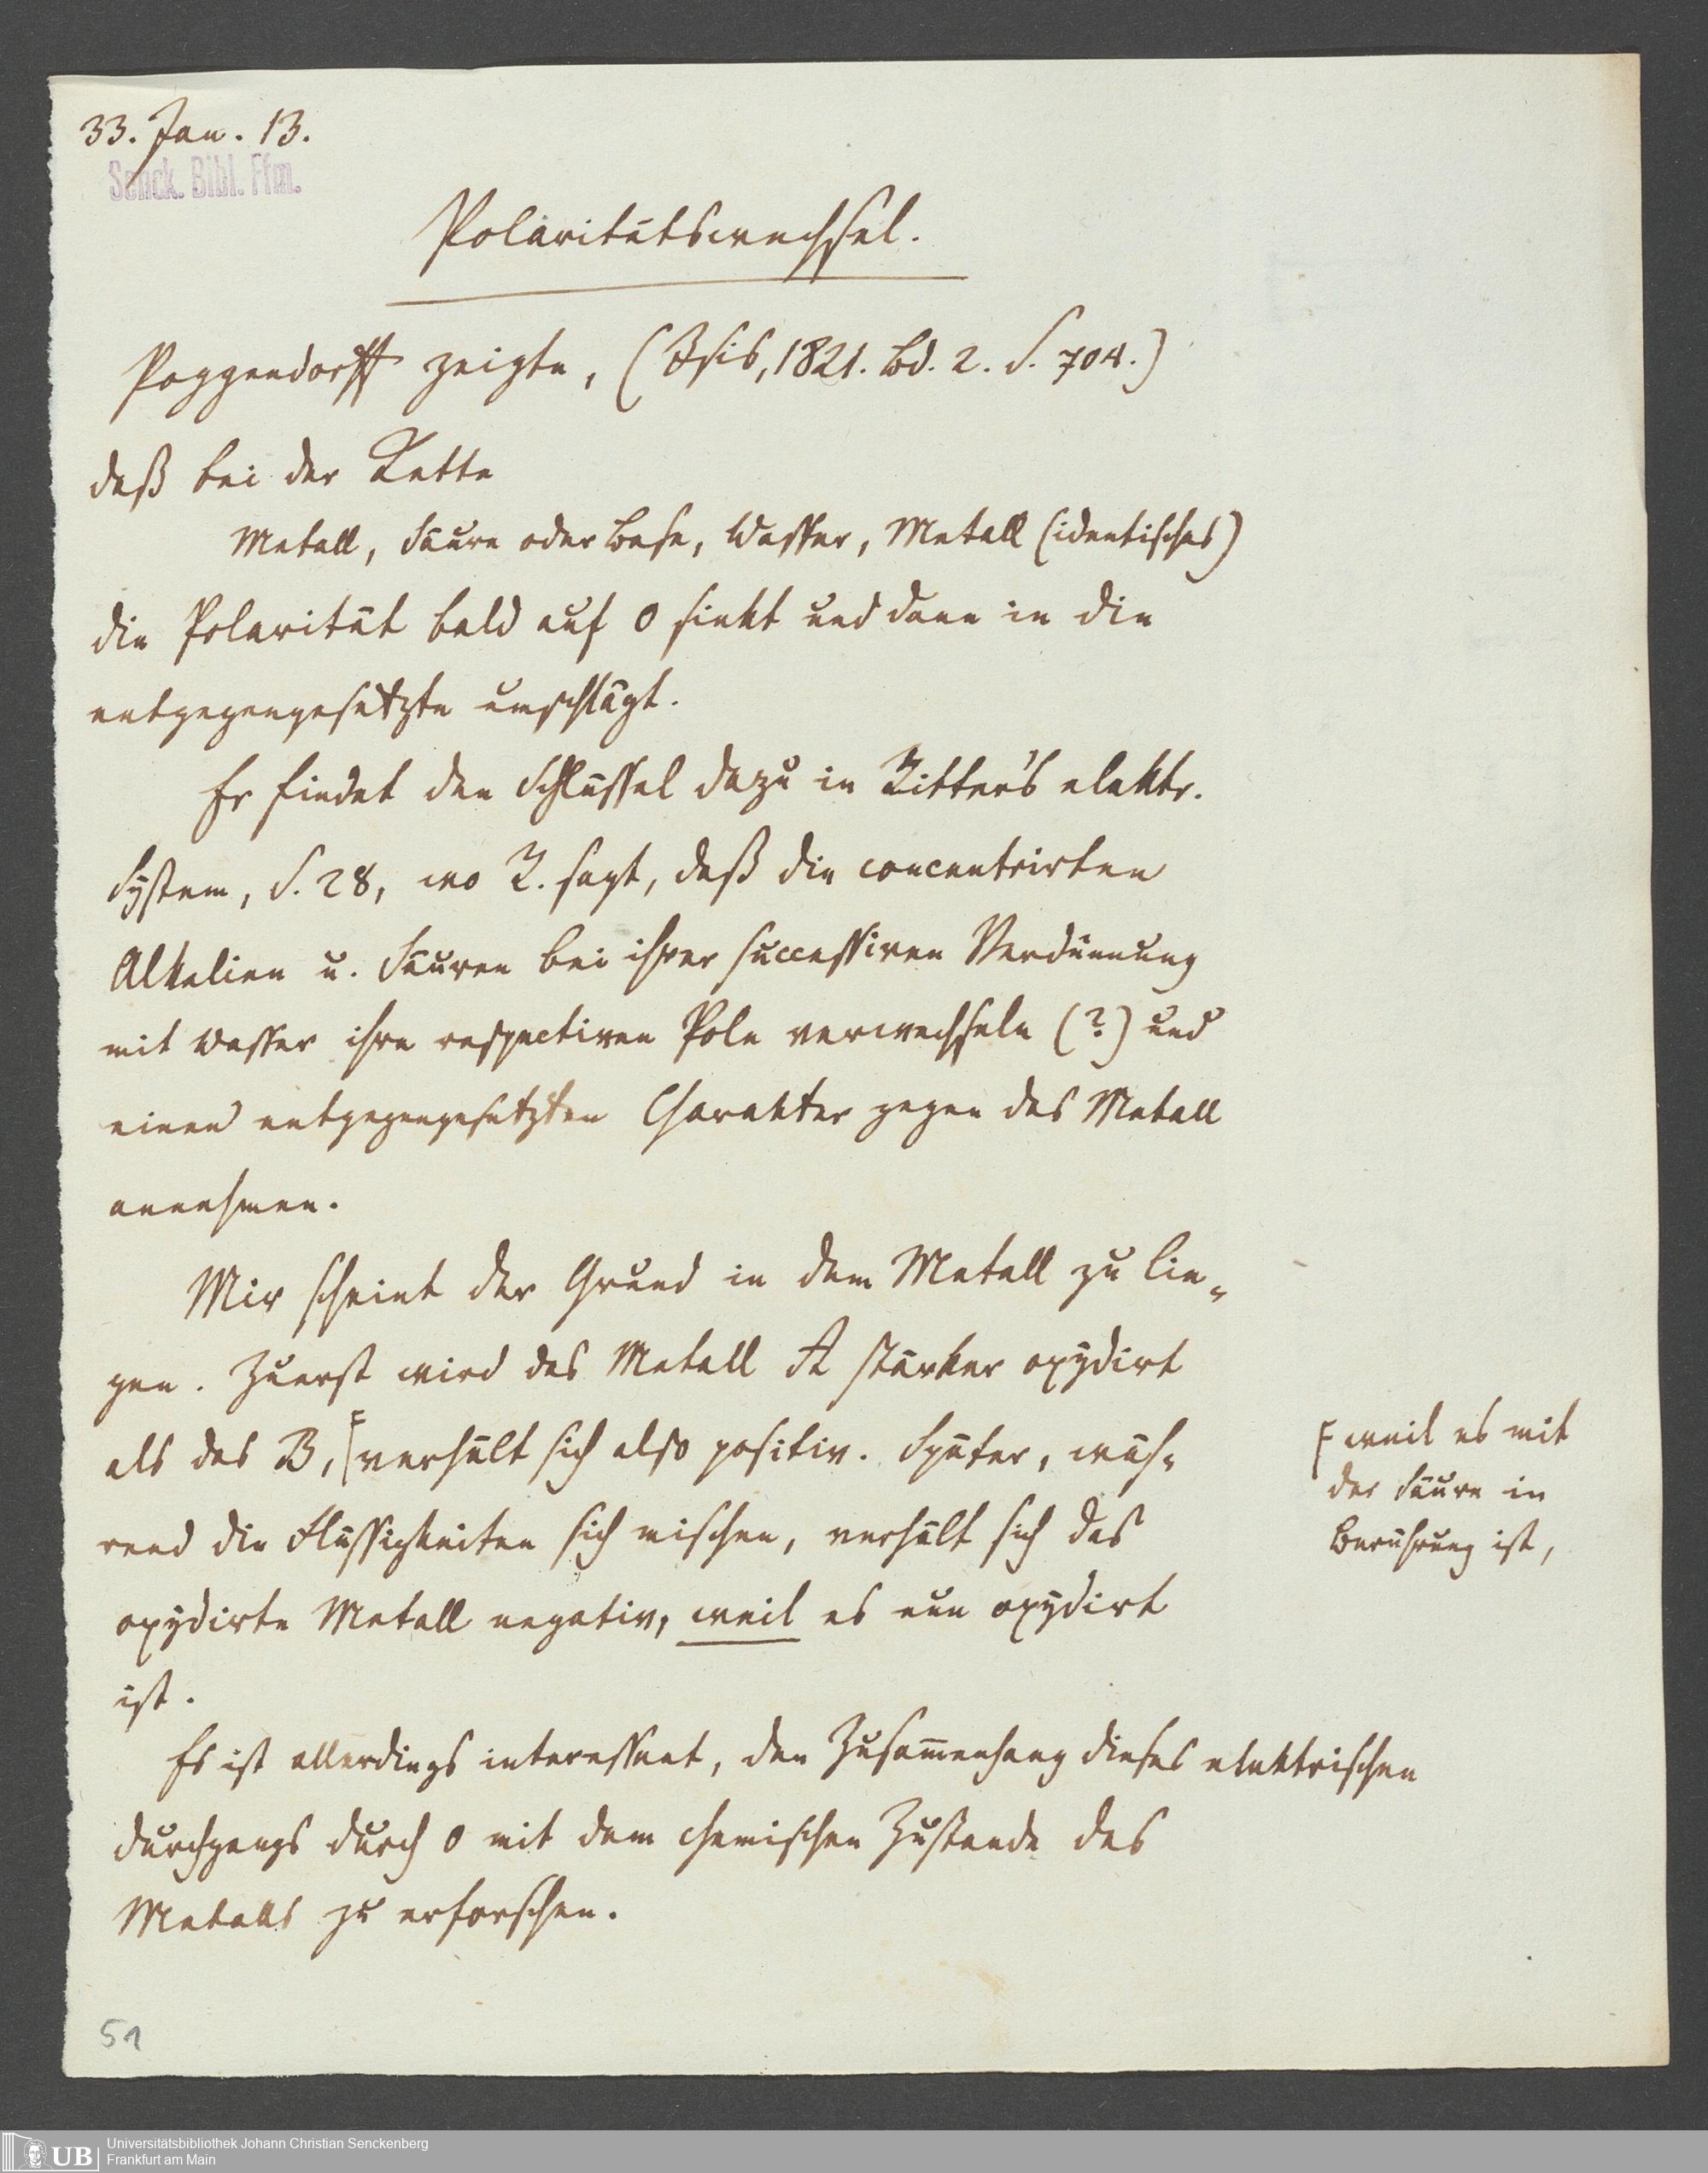 33. Jan. 13.
Senck. Bibl. Ffm.
Polaritätswechsel.
Poggendorff zeigte, (Isis, 1821. Bd. 2. S. 704.)
daß bei der Kette
Metall, Säure oder Base, Wasser, Metall (identisches)
die Polarität bald auf 0 sinkt und dann in die
entgegengesetzte umschlägt.
Er findet den Schlüssel dazu in Ritter's elektr.
System, S. 28, wo R. sagt, daß die concentrirten
Alkalien u. Säuren bei ihrer successiven Verdünnung
mit Wasser ihre respectiven Pole verwechseln (?) und
einen entgegengesetzten Charakter gegen das Metall
annehmen.
Mir scheint der Grund in dem Metall zu lie-
gen. Zuerst wird das Metall A stärker oxydirt
als das B, verhält sich also positiv. Später, wäh-
rend die Flüssigkeiten sich mischen, verhält sich das
oxydirte Metall negativ, weil es nun oxydirt
ist.
Es ist allerdings interessant, den Zusam̅enhang dieses elektrischen
Durchgangs durch 0 mit dem chemischen Zustande des
Metalls zu erforschen.
weil es mit
der Säure in
Berührung ist,
51
UB
Universitätsbibliothek Johann Christian Senckenberg
Frankfurt am Main